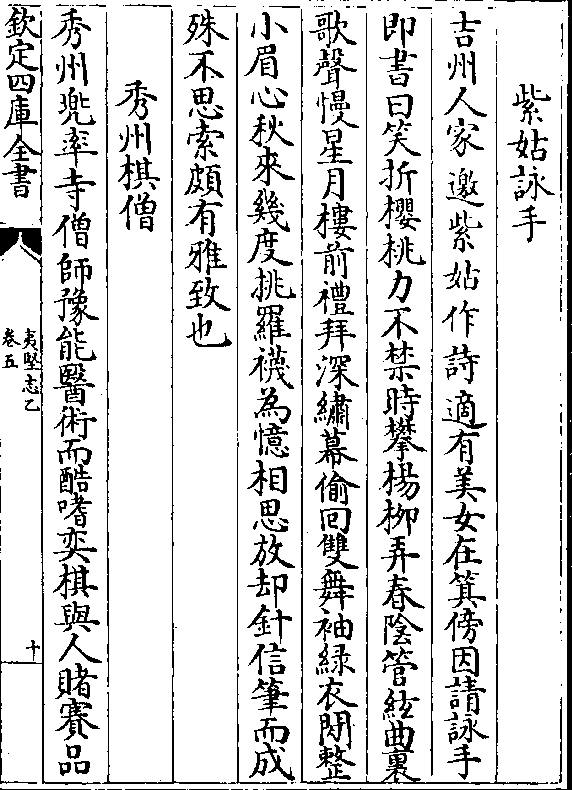 紫姑詠手
吉州人家邀紫姑作詩適有美女在箕傍因請詠手
即書曰笑折櫻桃力不禁時攀楊柳弄春陰管絃曲裏
歌聲慢星月樓前禮拜深繡幕偷回雙舞袖綠衣閒整
小眉心秋來幾度挑羅襪為憶相思放却針信筆而成
殊不思索頗有雅致也
秀州棋僧
秀州兜率寺僧師豫能醫術而酷嗜奕棋與人賭賽品
欽定四庫全書
夷堅志乙
卷五
十